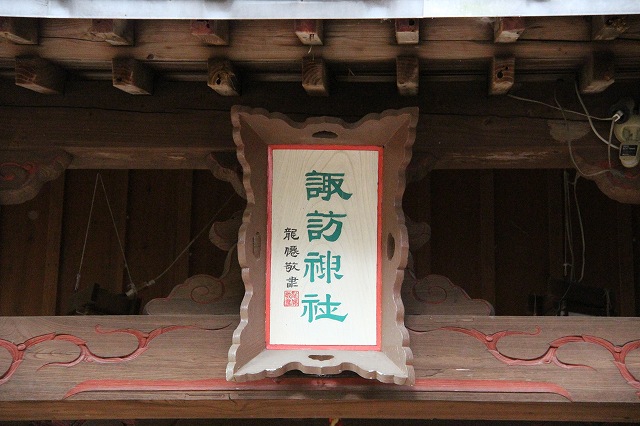 諏訪神社
龍僊敬書